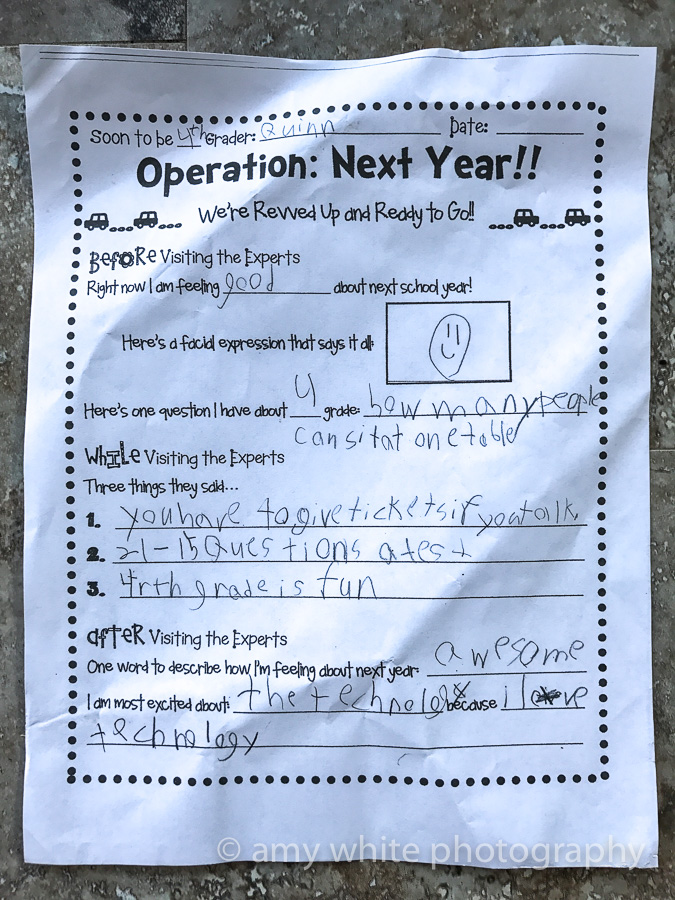 Soon to be 4th Grader: Quinn Date:
Operation: Next Year!!
We're Revved Up and Ready to Go!!
Before Visiting the Experts
Right now I am feeling good about next school year!
Here's a facial expression that says it all:
Here's one question I have about 4 grade: how many people
can sit at one table
While Visiting the Experts
Three things they said...
1. you have to give tickets if you talk
2. 21-15 Questions a test
3. 4rth grade is fun
After Visiting the Experts
One word to describe how I'm feeling about next year: awesome
I am most excited about: the technology because i love
technology
© amy white photography